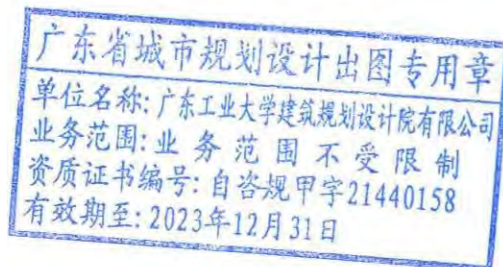 广东省城市规划设计出图专用章
单位名称:广东工业大学建筑规划设计院有限公司
业务范围:业务范围不受限制
资质证书编号:自咨规甲字21440158
有效期至:2023年12月31日